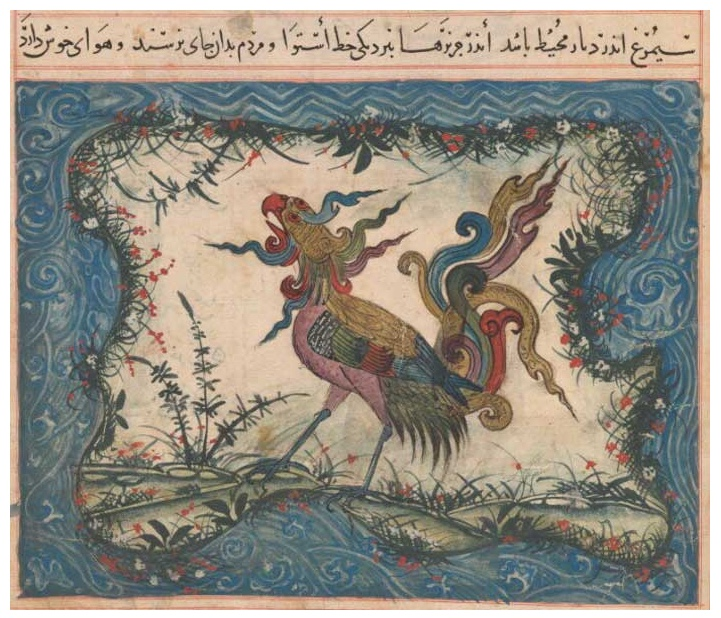 سیمرغ اندر دیار محیط باشد اندر جزیرها نبزدیکی خط استوا و مردم بدان جای نرسند و هوای خوش دارد